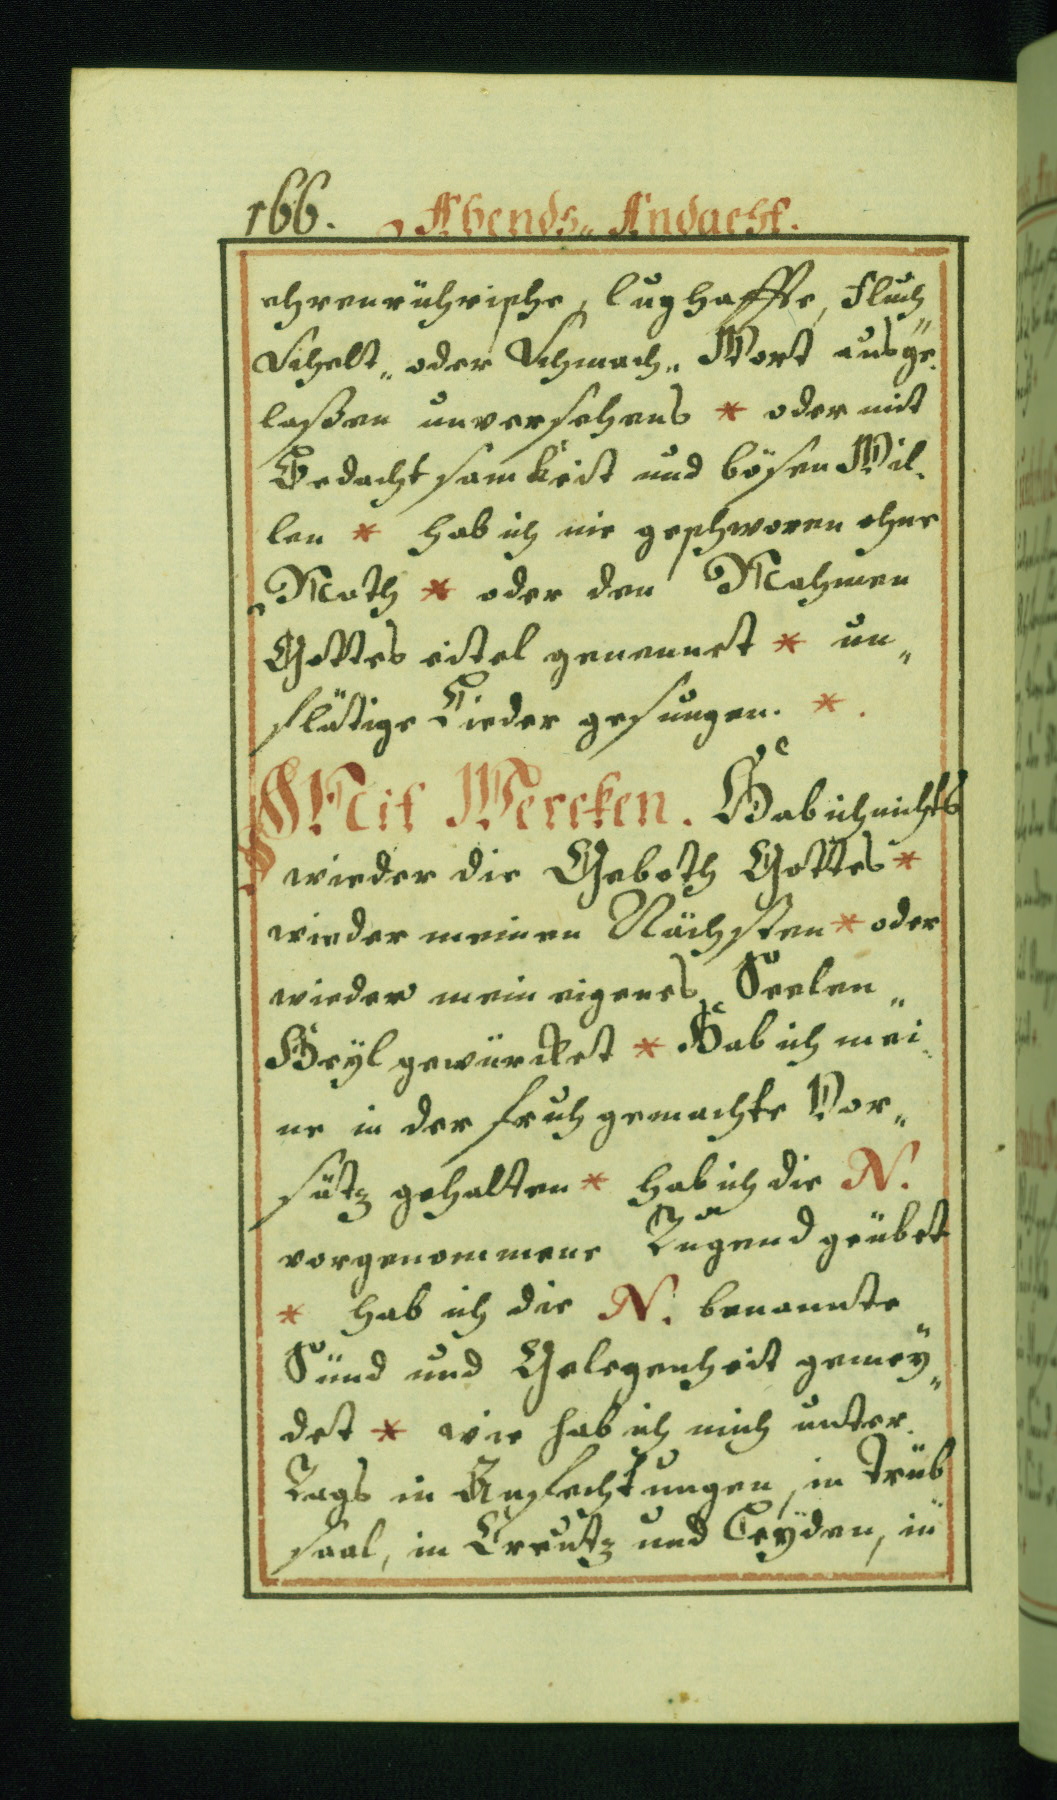 166. Abends„ Andacht.
ehrenrührische, lughaffte, Fluch„
Schelt„ oder Schmach„ Wort ausge„
laßen unversehens * oder mit
Bedachtsamkeit und bösen Wil„
len * hab ich nie geschworen ohne
Noth * oder den Nahmen
Gottes eitel genennet * un„
flätige Lieder gesungen. *.
Mit Wercken. Hab ich nichts
wieder die Geboth Gottes *
wieder meinen Nächsten * oder
wieder mein eigenes Seelen„
Heyl gewürcket * Hab ich mei„
ne in der fruh gemachte Vor„
sätz gehalten * hab ich die N.
vorgenommene Tugend geübet
* hab ich die N. benannte
Sünd und Gelegenheit gemey„
det * wie hab ich mich unter
Tags in Anfechtungen, in Trüb
saal, in Creutz und Leyden, in